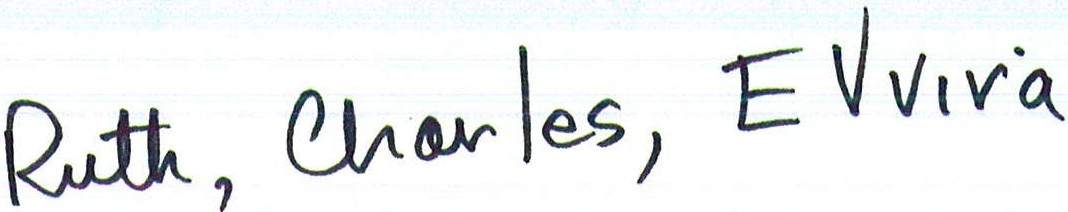 Ruth, Charles, EVvira